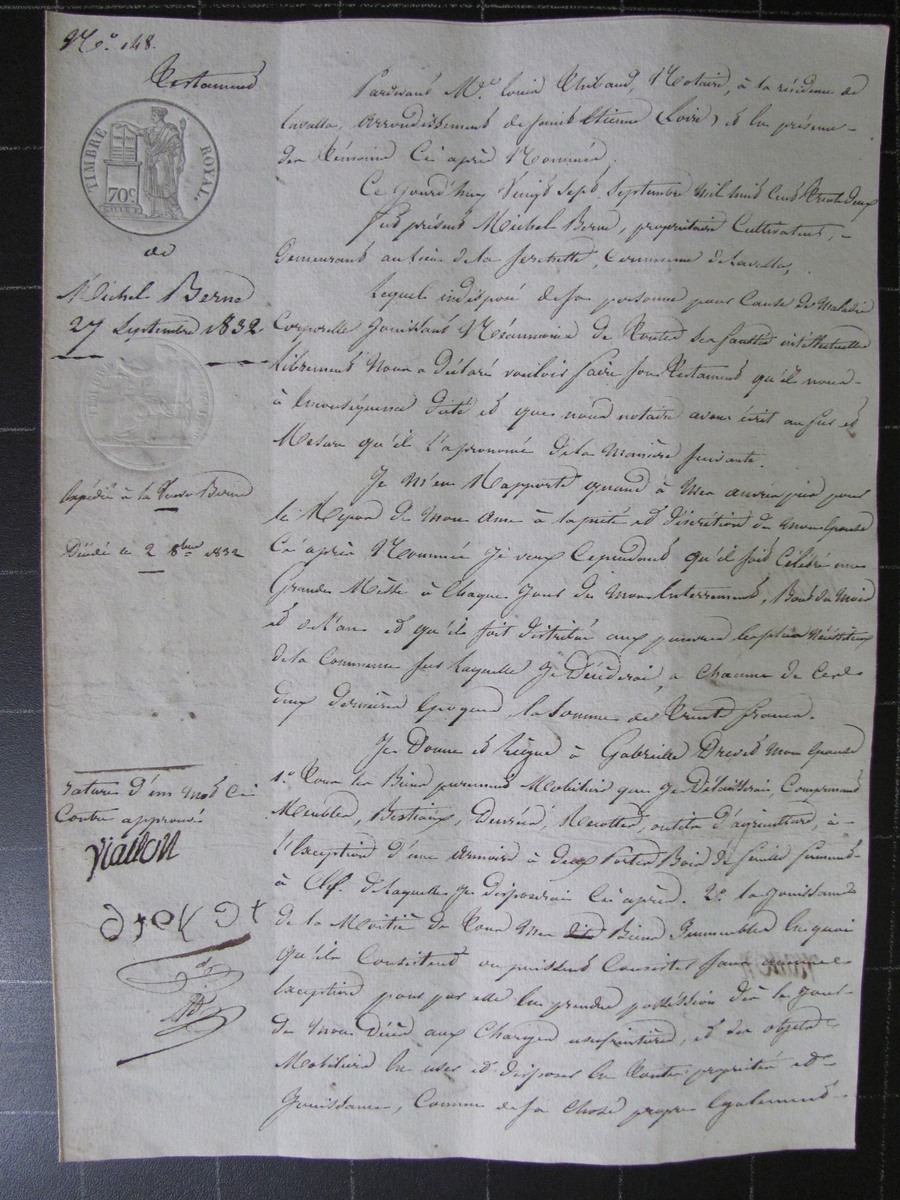 N.° 148.
Testament
TIMBRE ROYAL
70 c
de
Michel Berne
27 Septembre 1832
Expédié à la Veuve Berne
Décédé le 2 8bre 1832
rature d'un mot ci
Contre approuvé
Viallon
Pardevant Me. Louis Thibaud, Notaire, à la résidence de
Lavalla, arrondissement de Saint Etienne (Loire) et en présence
des témoins Ci après Nommés.
Ce Jourd'huy Vingt Sept Septembre Mil huit Cent trente deux
fut présent Michel Berne, propriétaire Cultivateur,
Demeurant au lieu de la , Commune de Lavalla,
Lequel indisposé de sa personne pour Cause de Maladie
Corporelle Jouissant Néanmoins de toutes ses facultés intellectuelles
librement Nous a Déclaré vouloir faire son testament qu'il nous
à dicté et que nous notaire avons écrit au fur et
Mesure qu'il l'a prononcé de la Manière suivante.
Je M'en Rapporte quand à Mes œuvres pies pour
le Repos de Mon Ame à la piété et discrétion de mon Epouse
Ci après Nommée Je veux Cependant qu'il soit Célébré une
Grande Messe à Chaque Jour de Mon Enterrement, Bout du Mois
et de l'an et qu'il soit distribué aux pauvres les plus Nécéssiteux
de la Commune sur laquelle Je Décéderai, à Chacune de Ces
deux dernières Epoques, la Somme de trente francs.
Je Donne et Lègue à Gabrielle mon Epouse
1.° Tous les Biens purement Mobiliers que Je Délaisserai, Comprenant
Meubles, Bestiaux, Denrées, Récoltes, outils d'agriculture, à
l'Exception d'une armoire à deux Portes Bois de fermant
à Clef de laquelle Je disposerai Ci après. 2.° la Jouissance
de la Moitié de Tous Mes dits Biens Immeubles En quoi
qu'ils Consistent ou puissent Consister sans aucune
Exception pour par elle En prendre possession dès le Jour
de Mon Décès aux Charges usufruitières, et des objets
Mobiliers En user et disposer En toute propriété et
Jouissance, Comme de Sa Chose propre Egalement